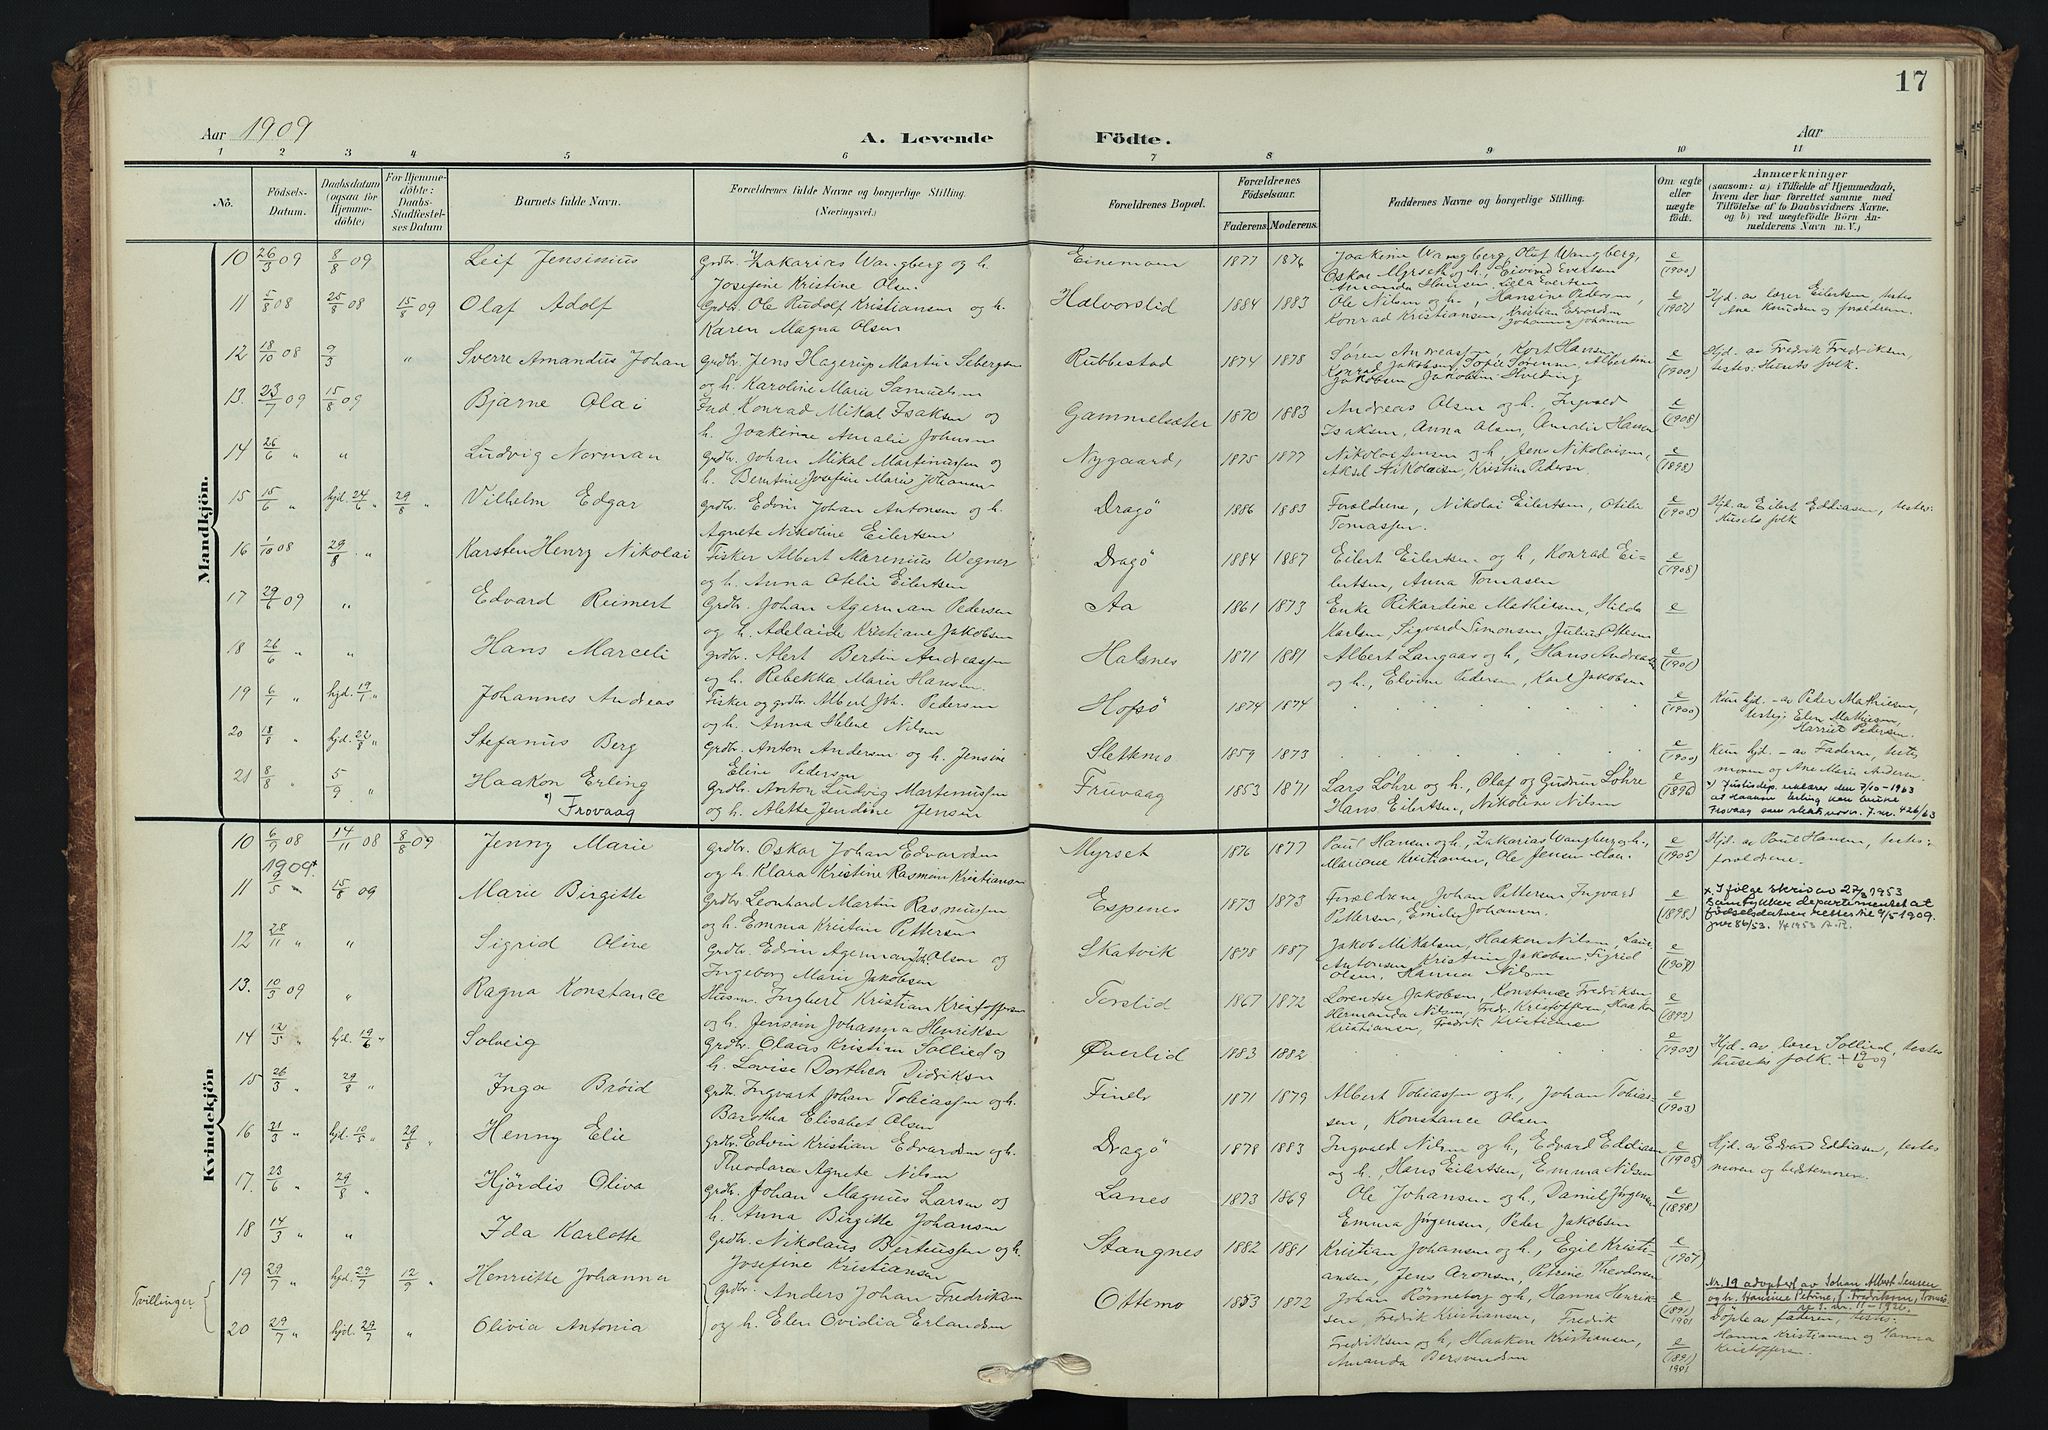 17
Aar 1909
A. Levende
Födte.
Aar
1 2 3 4 5 6 7 8 9 10 11
No.
Födsels-Datum.
Daabsdatum (ogsaa för Hjemmedöbte)
For Hjemmedöbte: Daabs-Stadfæstelses Datum
Barnets fulde Navn.
Forældrenes fulde Navne og borgerlige Stilling. (Næringsvei.)
Forældrenes Bopæl.
Forældrenes Födselsaar.
Faderens.
Moderens.
Faddernes Navne og borgerlige Stilling.
Om ægte eller uægte födt.
Anmærkninger
(saasom: a) i Tilfælde af Hjemmedaab,
hvem der har forrettet samme med
Tilföielse af to Daabsvidners Navne.
og b) ved uægtefödte Börn Anmelderens Navn m. V.)
Mandkjön.
10 26/3 09 8/8 09 Leif Jensinius Grdbr. Zakarias Wangberg og h. Josefine Kristine Olsen Einemoen 1877 1876 Joakime Wangberg, Olaf Wangberg, Oskar Myrseth og h., Eivind Evertsen Amanda Hansen, Lilla Evertsen e (1900)
11 5/8 08 25/8 08 15/8 09 Olaf Adolf Grdbr. Ole Rudolf Kristiansen og h. Karen Magna Olsen Halvorslid 1884 1883 Ole Nilsen og h., Hansine Pedersen, Konrad Kristiansen, Kristian Edvardsen Johanna Johansen e (1907) Hjd. av lærer Eilertsen, testes Ane Knudsen og forældrene.
12 18/10 08 9/3 " Sverre Amandus Johan Grdbr. Jens Hagerup Martin Sebergsen og h. Karoline Marie Samuelsen Rubbestad 1874 1878 Søren Andreassen, Kort Hansen Konrad Jakobsen, Sofie Sørensen, Albertine Jakobsen e (1900) Hjd. av Fredrik Fredriksen, testes: Husets folk.
13. 23/7 09 15/8 09 Bjarne Olai Ind. Konrad Mikal Isaksen og h. Joakime Amalie Johnsen Gammelsæter 1870 1883 Andreas Olsen og h. Ingvald Isaksen, Anna Olsen, Amalie Hansen e (1908)
14 26/6 " " Ludvig Norman Grdbr. Johan Mikal Martinussen og h. Berntine Josefine Marie Johansen Nygaard, 1875 1877 Nikolai Jensen og h., Jens Nikolaisen, Aksel Nikolaisen, Kristine Pedersen e (1898)
15 15/6 " hjd. 24/6 " 29/8 " Vilhelm Edgar Grdbr. Edvin Johan Antonsen og h. Agnete Nikoline Eilertsen Dragö 1886 1883 Forældrene, Nikolai Eilertsen, Otilie Tomassen. e (1905) Hjd. av Eilert Eddiasen, testes: Husets folk
16 1/10 08 29/8 " Karsten Henry Nikolai Fisker Albert Marenius Wegner og h. Anna Otelie Eilertsen Dragö 1884 1887 Eilert Eilertsen og h, Konrad Eilertsen, Anna Tomasen e (1908)
17 29/6 09 " Edvard Reimert Grdbr. Johan Agerman Pedersen og h. Adelaide Kristiane Jakobsen Aa 1861 1873 Enke Rikardine Mathisen, Hilda Karlsen Sigvard Simonsen, Julius Ottesen e
18 26/6 " " Hans Marceli Grdbr. Alert Bertin Andreassen og h. Rebekka Marie Hansen. Halsnes 1871 1881 Albert Langaas og h, Hans Andreassen og h., Elvine Pedersen, Karl Jakobsen e (1901)
19 6/1 " hjd. 19/1 " Johannes Andreas Fisker og grdbr. Albert Joh. Pedersen og h. Anna Helene Nilsen Hofsö 1874 1874 e (1900) Kun hjd. - av Peder Mathisen, testes: Elen Mathisen, Harriet Pedersen.
20 18/8 " hjd. 22/8 " Stefanus Berg Grdbr. Anton Andersen og h. Jensine Eline Pedersen Slettmo 1859 1873 e (1900) Kun hjd. - av Faderen, testes moren og Ane Marie Andersen.
21 8/8 " 5/9 " Haakon Erling Grdbr. Anton Ludvig Martinussen og h. Alette Jendine Jensen Fruvaag 1853 1871 Lars Löhre og h., Olaf og Gudrun Löhre Hans Eilertsen, Nikoline Nilsen e (1896) x) Justisdep. erklærer den 7/10-1963 at Haakon Erling kan bruke Frovaag som slektsnavn. J.nr. 426/63
x) Frovaag
Kvindekjön
10 6/9 08 14/11 08 8/8 09 Jenny Marie Grdbr. Oskar Johan Edvardsen og h. Klara Kristine Rasmine Kristiansen Myrset 1876 1877 Paul Hansen og h., Zakarias Wangberg og h., Mariane Kristiansen, Ole Jensen e (1905) Hjd. av Paul Hansen, testes: forældrene.
1909 x
11 9/5 " 15/8 09 Marie Birgitte Grdbr. Leonhard Martin Rasmussen og h. Emma Kristine Pettersen Espenes 1873 1873 Forældrene, Johan Pettersen, Ingvard Pettersen, Emilie Johansen. e (1898) x. Ifølge skriv av 27/3 1953 samtykker departementet at fødselsdatoen rettes til 9/5 1909. jnr 86/53. 1/4 1953 A.R.
12 28/11 " " Sigrid Oline Grdbr. Edvin Agerman Olsen og Ingeborg Marie Jakobsen Skatvik 1878 1887 Jakob Mikalsen, Haakon Nilsen, Laura Antonsen, Kristine Jakobsen, Sigrid Olsen, Hanna Nilsen e (1907)
13. 10/3 09 " Ragna Konstance Husm. Ingbert Kristian Kristoffersen og h. Jensine Johanna Henriksen Torslid 1867 1872 Lorentse Jakobsen, Konstance Fredriksen Hermanda Nilsen, Fredr. Kristoffersen, Haakon Kristiansen, Fredrik Kristiansen e (1892)
14 12/5 " hjd. 19/6 " Solveig Grdbr. Olaus Kristian Sollied og h. Lovise Dorthea Didriksen Øverlid 1883 1882 e (1903) Hjd. av lærer Sollied, testes husets folk. + 19/6 09
15 26/3 " 29/8 " Inga Brøid Grdbr. Ingvart Johan Tobiassen og h. Barotha Elisabet Olsen Finelv 1871 1879 Albert Tobiassen og h, Johan Tobiassen, Konstance Olsen e (1903)
16 21/3 " hjd. 10/5 " 29/8 " Henny Elie Grdbr. Edvin Kristian Edvardsen og h. Theodora Agnete Nilsen Dragö 1878 1883 Ingvald Nilsen og h, Edvard Eddiasen og h, Hans Eilertsen, Emma Nilsen e (1905) Hjd. av Edvard Eddiasen, testes moren og bedstemoren.
17. 23/6 " 29/8 " Hjördis Oliva Grdbr. Johan Magnus Larsen og h. Anna Birgitte Johansen Lanes 1873 1869 Ole Johansen og h., Daniel Jørgensen Emma Jørgensen, Peder Jakobsen e (1898)
18 14/3 " " Ida Karlotte Grdbr. Nikolaus Berteussen og h. Josefine Kristiansen Stangnes 1882 1881 Kristian Johansen og h., Egil Kristiansen, Jens Aronsen, Petrine Theodorsen e (1907)
Tvillinger.
19 29/7 " hjd. 29/7 12/9 " Henriette Johanna Grdbr. Anders Johan Fredriksen og h. Elen Ovidia Erlandsen Ottemo 1853 1872 Johan Rönneberg og h., Hanna Henriksen, Fredrik Kristiansen, Fredrik Fredriksen og h, Haakon Kristiansen, Amanda Bersvendsen e (1891) 1901 Nr. 19 adoptert av Johan Albert Jensen og h. Hansine Petrine, f. Fredriksen, Tromsö se J. nr. 11-1920.
20 29/7 " hjd. 29/7 " Olivia Antonia e (1891) 1901 Döpt av faderen, testes: Hanna Kristiansen og Hanna Kristoffersen.